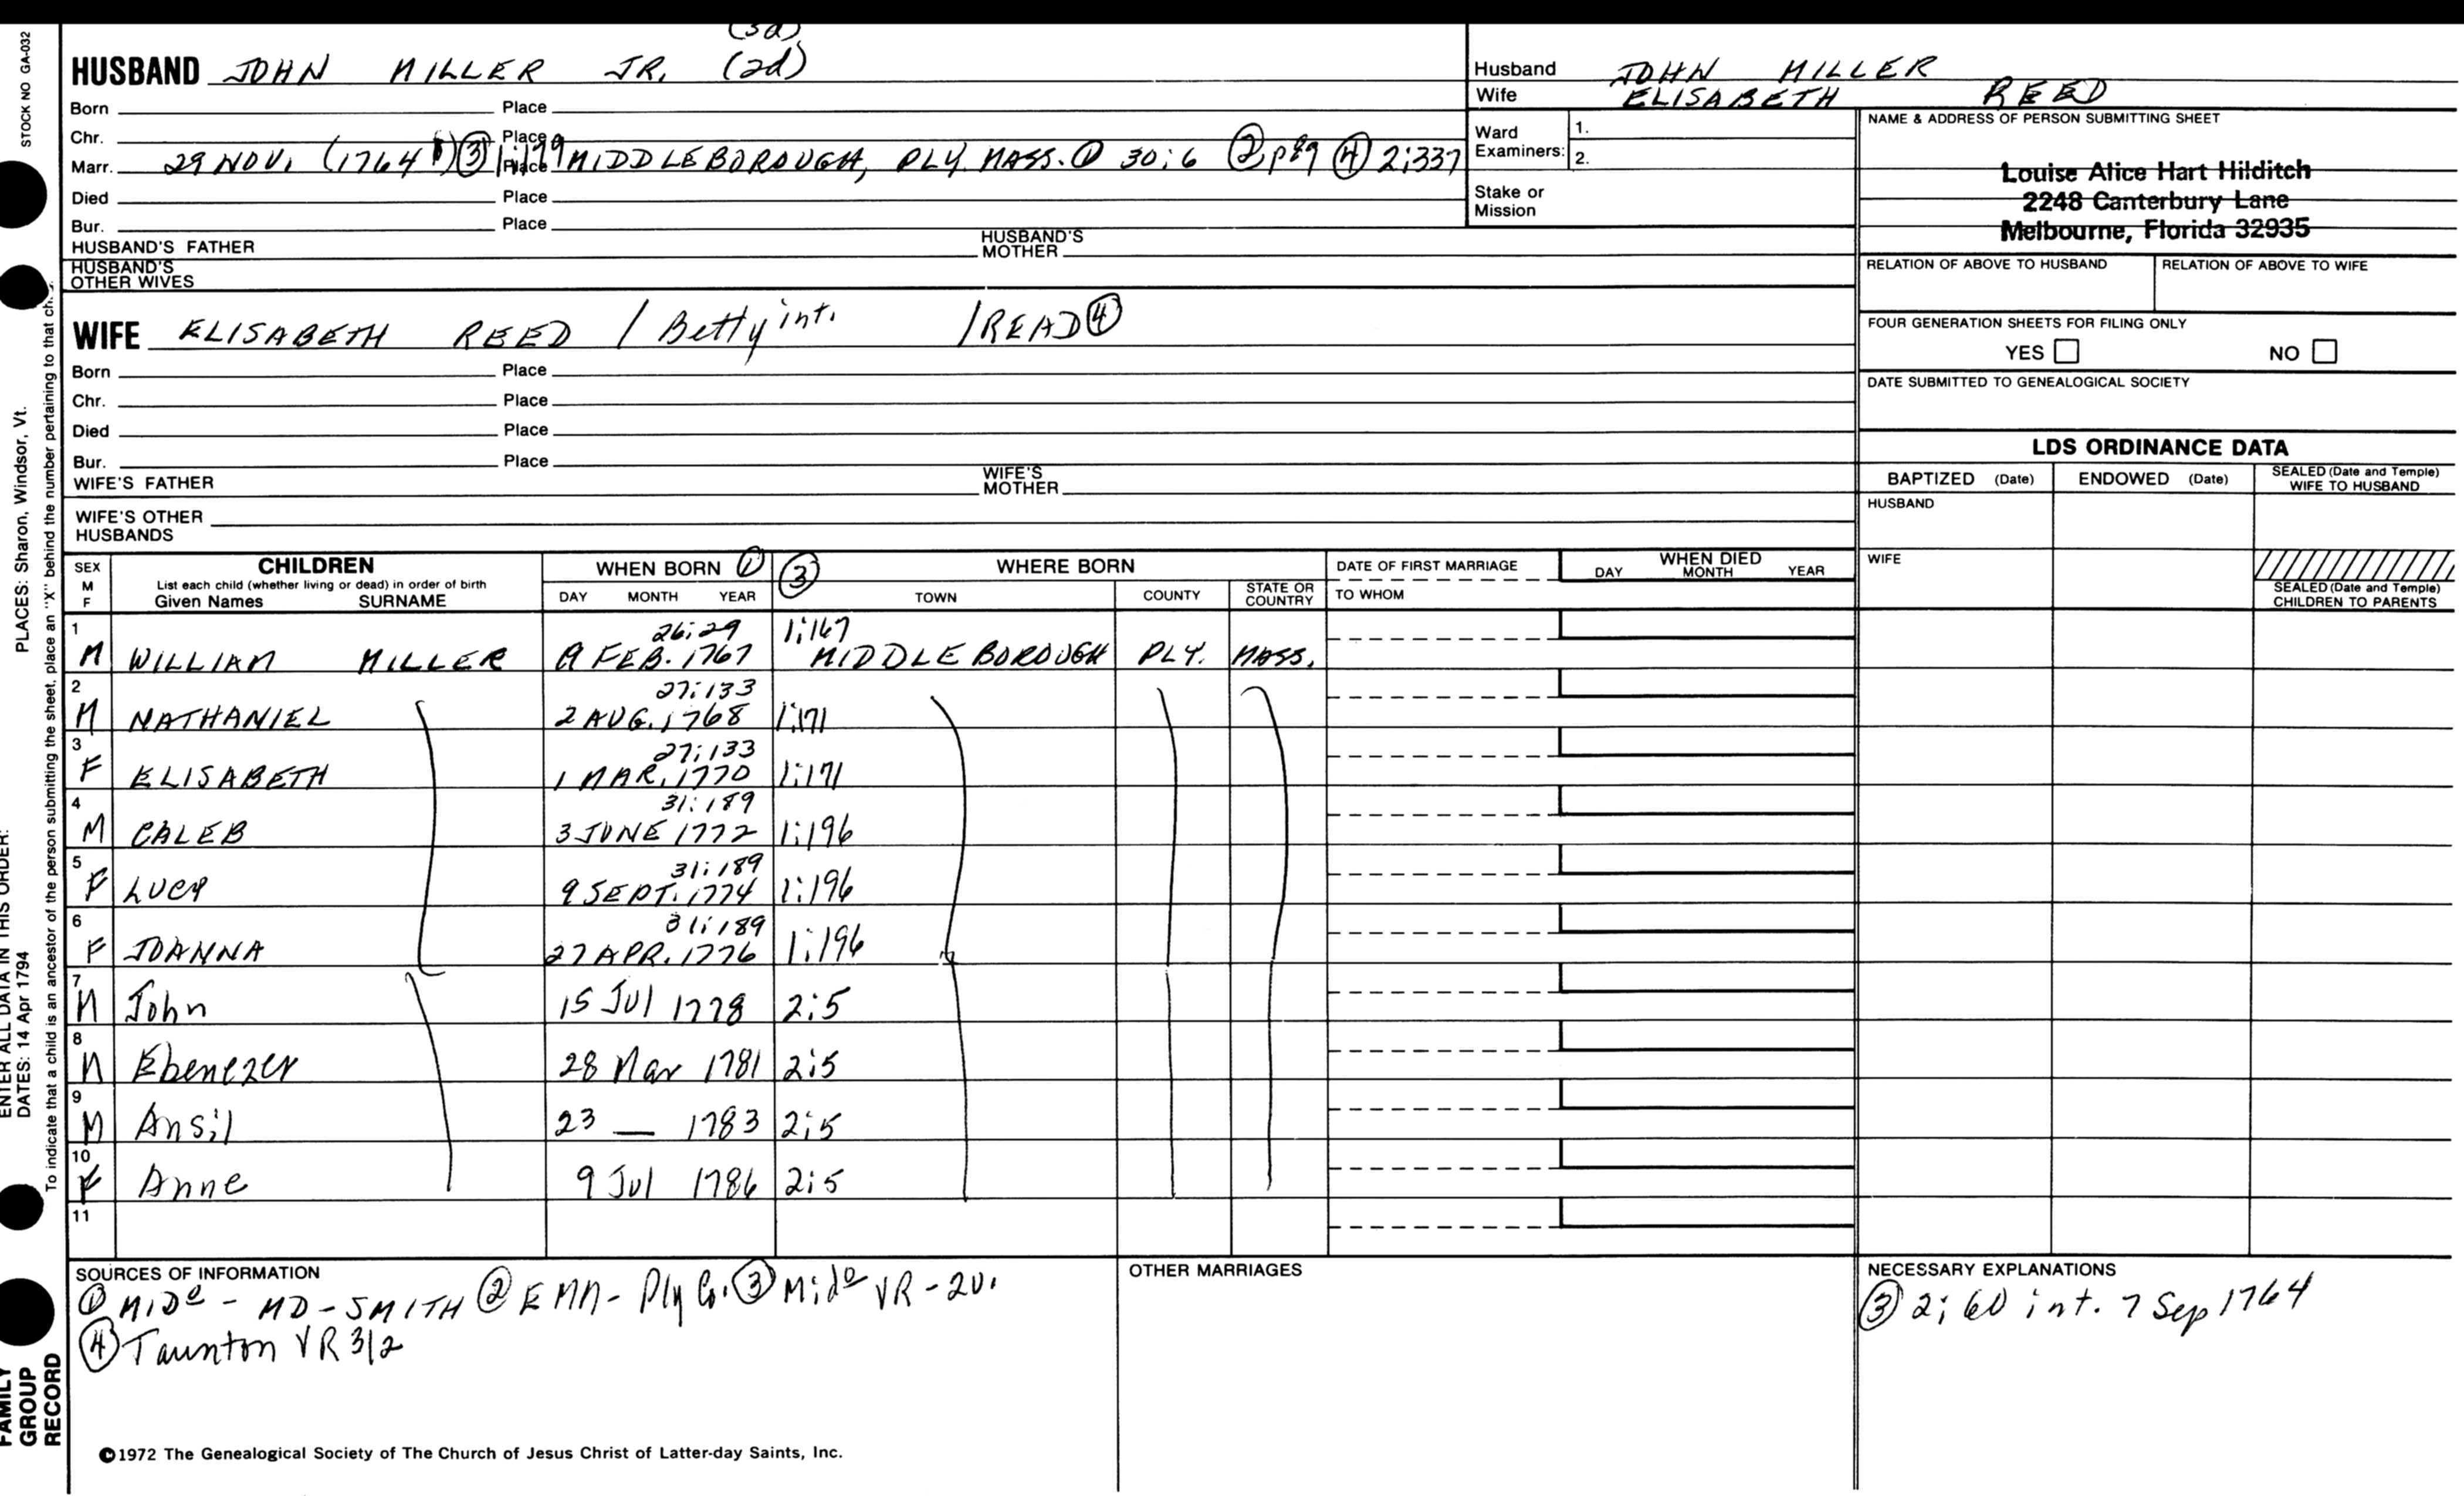 (3d)
HUSBAND JOHN MILLER JR. (2d)
Born Place
Chr. Place
Marr. 29 NOV. (1764) ③ 1:199 Place MIDDLEBOROUGH, PLY. MASS. ① 30:6 ② p89 ④ 2:337
Died Place
Bur. Place
HUSBAND'S FATHER HUSBAND'S MOTHER
HUSBAND'S OTHER WIVES
WIFE ELISABETH REED / Betty int. / READ ④
Born Place
Chr. Place
Died Place
Bur. Place
WIFE'S FATHER WIFE'S MOTHER
WIFE'S OTHER HUSBANDS
Husband JOHN MILLER
Wife ELISABETH REED
Ward Examiners: 1.
2.
Stake or Mission
NAME & ADDRESS OF PERSON SUBMITTING SHEET
Louise Alice Hart Hilditch
2248 Canterbury Lane
Melbourne, Florida 32935
RELATION OF ABOVE TO HUSBAND RELATION OF ABOVE TO WIFE
FOUR GENERATION SHEETS FOR FILING ONLY
YES NO
DATE SUBMITTED TO GENEALOGICAL SOCIETY
LDS ORDINANCE DATA
BAPTIZED (Date) ENDOWED (Date) SEALED (Date and Temple) WIFE TO HUSBAND
HUSBAND
WIFE
SEALED (Date and Temple) CHILDREN TO PARENTS
SEX M F
CHILDREN
List each child (whether living or dead) in order of birth
Given Names SURNAME
WHEN BORN ①
DAY MONTH YEAR
③ WHERE BORN
TOWN COUNTY STATE OR COUNTRY
DATE OF FIRST MARRIAGE
TO WHOM
WHEN DIED
DAY MONTH YEAR
1 26:29 1:167
M WILLIAM MILLER 9 FEB. 1767 MIDDLEBOROUGH PLY. MASS.
2 27:133
M NATHANIEL 2 AUG. 1768 1:171
3 27:133
F ELISABETH 1 MAR. 1770 1:171
4 31:189
M CALEB 3 JUNE 1772 1:196
5 31:189
F LUCY 9 SEPT. 1774 1:196
6 31:189
F JOANNA 27 APR. 1776 1:196
7
M John 15 Jul 1778 2:5
8
M Ebenezer 28 Mar 1781 2:5
9
M Ansil 23 — 1783 2:5
10
F Anne 9 Jul 1786 2:5
11
SOURCES OF INFORMATION
① MIDo - MD - SMITH ② EMM - Ply Co. ③ Mido VR - 2v.
④ Taunton VR 3/2
OTHER MARRIAGES
NECESSARY EXPLANATIONS
③ 2:60 int. 7 Sep 1764
©1972 The Genealogical Society of The Church of Jesus Christ of Latter-day Saints, Inc.
STOCK NO GA-032
PLACES: Sharon, Windsor, Vt.
ENTER ALL DATA IN THIS ORDER:
DATES: 14 Apr 1794
To indicate that a child is an ancestor of the person submitting the sheet, place an "X" behind the number pertaining to that
FAMILY
GROUP
RECORD